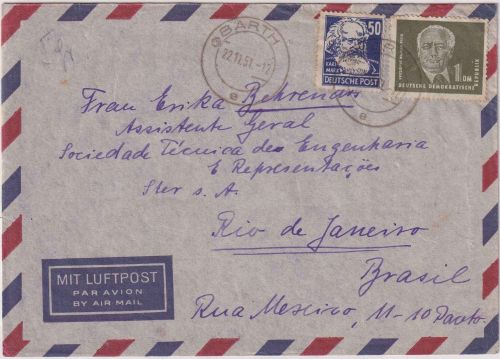 BARTH
22.11.51.-12
e
50
KARL MARX
DEUTSCHE POST
1 DM
DEUTSCHE DEMOKRATISCHE REPUBLIK
e
Frau Erika Behrends
Assistente Geral
Sociedade Técnica de Engenharia
E Representações
Ster s. A.
Rio de Janeiro
Brasil
Rua Mexico, 11-10 Pavto.
MIT LUFTPOST
PAR AVION
BY AIR MAIL